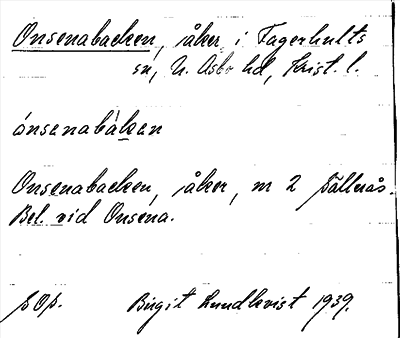 Onsenabacken, åker i Fagerhults
sn, N. Åsbo hd, Krist. l.
ónsenabàken
Onsenabacken, åker, m 2 Fällnäs.
Bel. vid Onsena.
Birgit Lundkvist 1939.